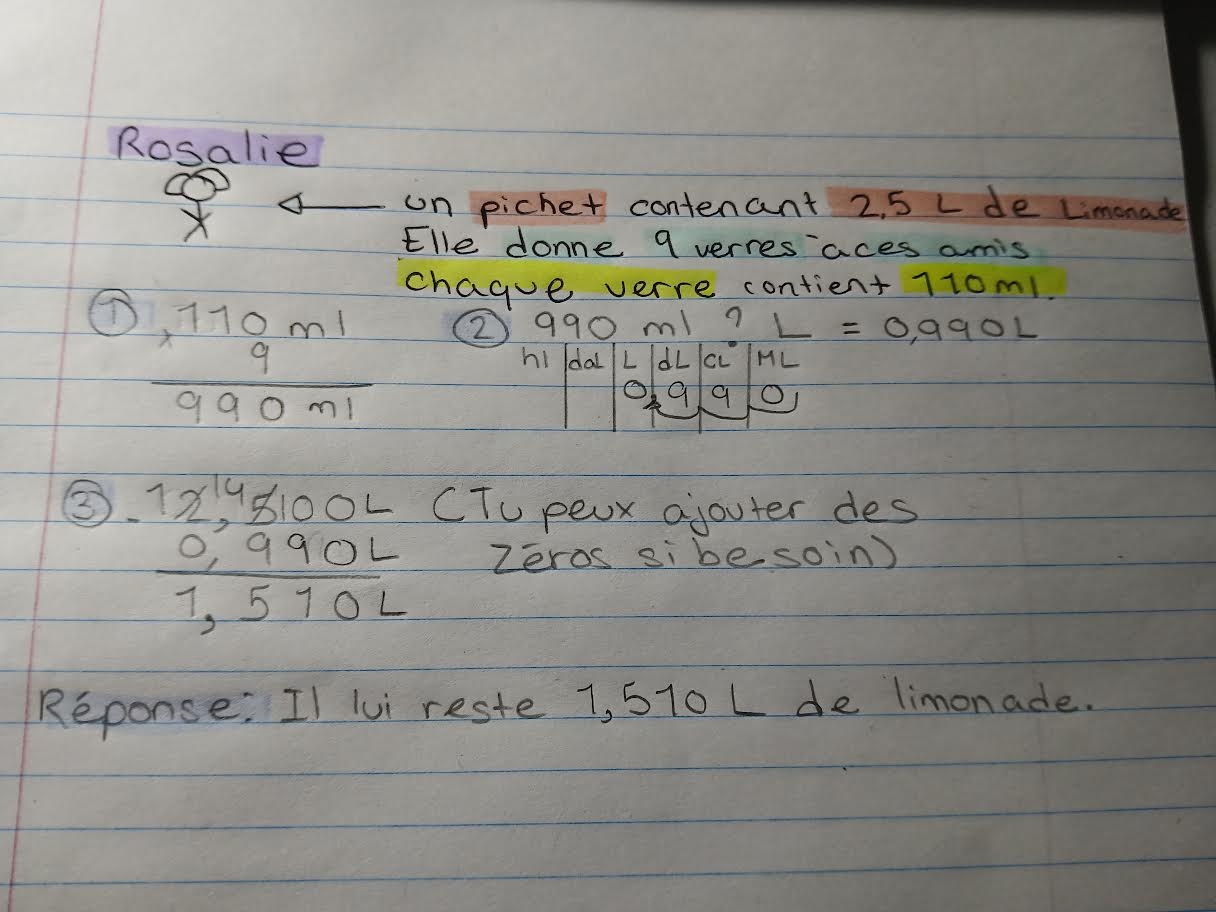 Rosalie
un pichet contenant 2,5 L de Limonade
Elle donne 9 verres aces amis
chaque verre contient 110 ml.
① 110 ml
x 9
990 ml
② 990 ml ? L = 0,990L
hl daL L dL CL ML
0, 9 9 0
③ - 12,145100L (Tu peux ajouter des
0,990L zéros si besoin)
1,510L
Réponse: Il lui reste 1,510 L de limonade.